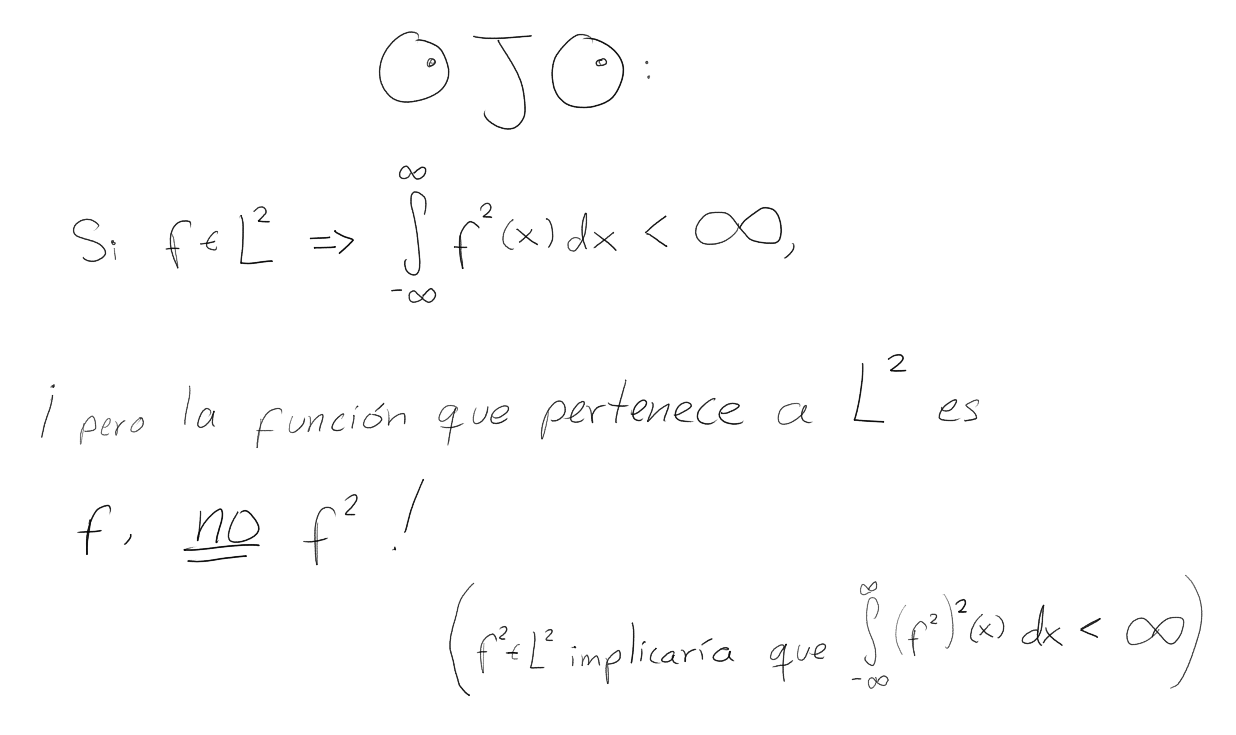 OJO:
Si f ∈ L² => ∫_{-∞}^{∞} f²(x) dx < ∞,
¡pero la función que pertenece a L² es
f, no f²!
(f² ∈ L² implicaría que ∫_{-∞}^{∞} (f²)²(x) dx < ∞)